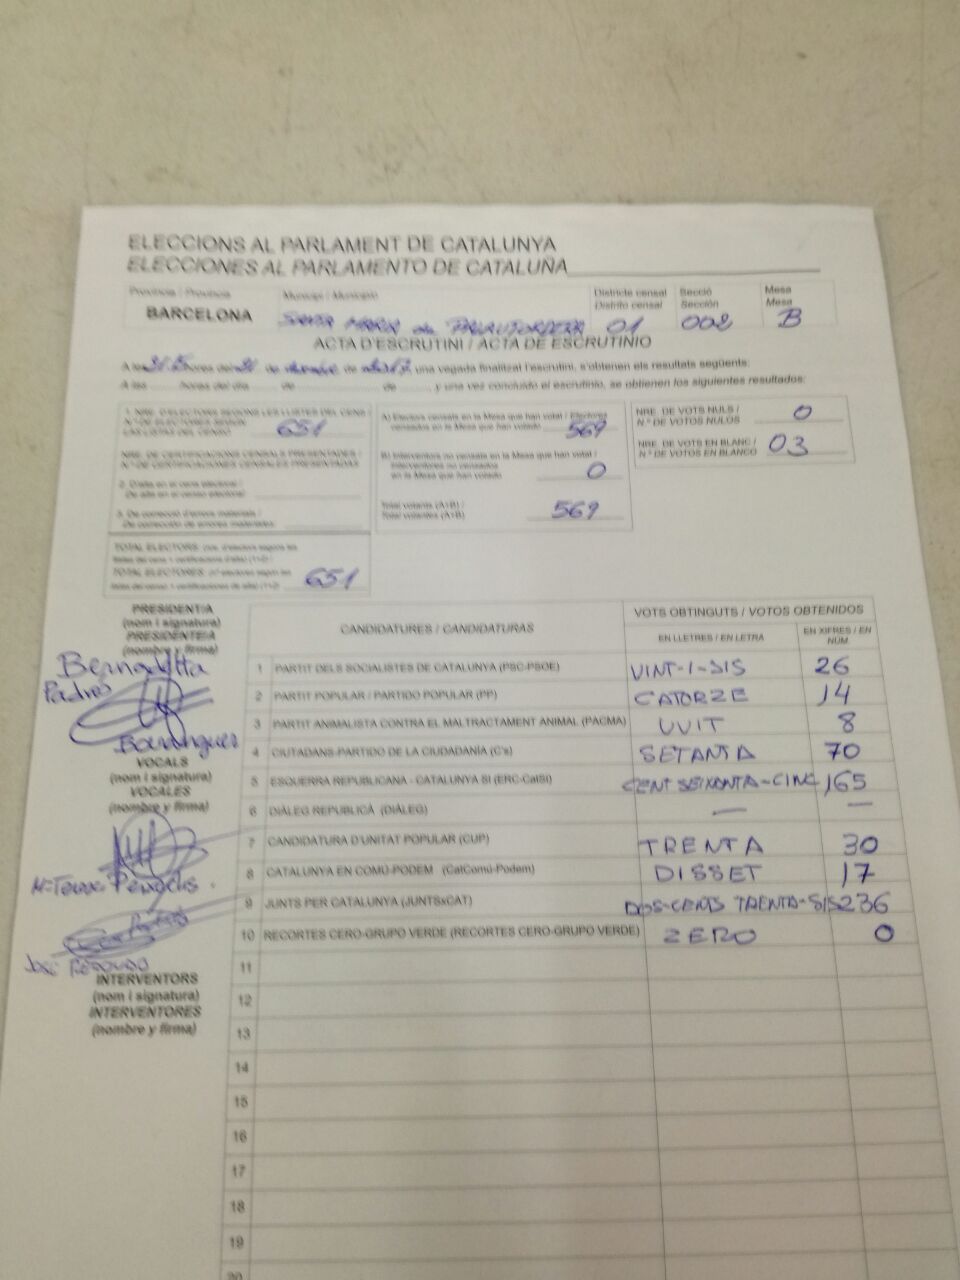 ELECCIONS AL PARLAMENT DE CATALUNYA
ELECCIONES AL PARLAMENTO DE CATALUÑA
Província / Provincia
Municipi / Municipio
Districte censal
Distrito censal
Secció
Sección
Mesa
Mesa
BARCELONA
SANTA MARIA de PALAUTORDERA
01
002
B
ACTA D'ESCRUTINI / ACTA DE ESCRUTINIO
A les hores del de de , una vegada finalitzat l'escrutini, s'obtenen els resultats següents:
A las horas del día de de , y una vez concluido el escrutinio, se obtienen los siguientes resultados:
1. NRE. D'ELECTORS SEGONS LES LLISTES DEL CENS /
N.º DE ELECTORES SEGÚN
LAS LISTAS DEL CENSO
651
NRE. DE CERTIFICACIONS CENSALS PRESENTADES /
N.º DE CERTIFICACIONES CENSALES PRESENTADAS
2. D'alta en el cens electoral /
De alta en el censo electoral
3. De correcció d'errors materials /
De corrección de errores materiales
TOTAL ELECTORS
TOTAL ELECTORES
651
A) Electors censats en la Mesa que han votat / Electores
censados en la Mesa que han votado
569
B) Interventors no censats en la Mesa que han votat /
Interventores no censados
en la Mesa que han votado
0
Total votants (A+B) /
Total votantes (A+B)
569
NRE. DE VOTS NULS /
N.º DE VOTOS NULOS
0
NRE. DE VOTS EN BLANC /
N.º DE VOTOS EN BLANCO
03
PRESIDENT/A
(nom i signatura)
PRESIDENTE/A
(nombre y firma)
Bernadetta
Padrós
VOCALS
(nom i signatura)
VOCALES
(nombre y firma)
INTERVENTORS
(nom i signatura)
INTERVENTORES
(nombre y firma)
CANDIDATURES / CANDIDATURAS
VOTS OBTINGUTS / VOTOS OBTENIDOS
EN LLETRES / EN LETRA
EN XIFRES / EN
NÚM.
1 PARTIT DELS SOCIALISTES DE CATALUNYA (PSC-PSOE) VINT-I-SIS 26
2 PARTIT POPULAR / PARTIDO POPULAR (PP) CATORZE 14
3 PARTIT ANIMALISTA CONTRA EL MALTRACTAMENT ANIMAL (PACMA) VUIT 8
4 CIUTADANS-PARTIDO DE LA CIUDADANÍA (C's) SETANTA 70
5 ESQUERRA REPUBLICANA - CATALUNYA SÍ (ERC-CatSí) CENT SEIXANTA-CINC 165
6 DIÀLEG REPUBLICÀ (DIÀLEG) — —
7 CANDIDATURA D'UNITAT POPULAR (CUP) TRENTA 30
8 CATALUNYA EN COMÚ-PODEM (CatComú-Podem) DISSET 17
9 JUNTS PER CATALUNYA (JUNTSxCAT) DOS-CENTS TRENTA-SIS 236
10 RECORTES CERO-GRUPO VERDE (RECORTES CERO-GRUPO VERDE) ZERO 0
11
12
13
14
15
16
17
18
19
20